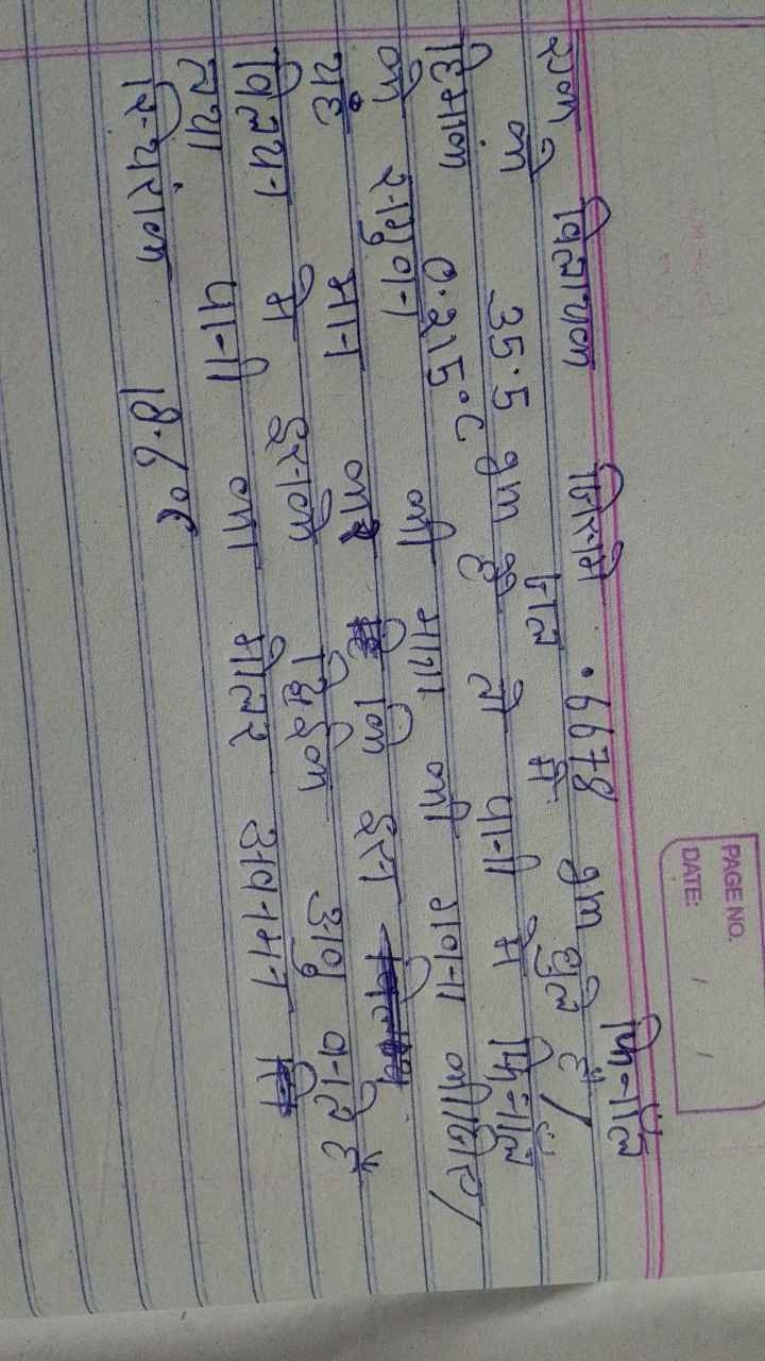 PAGE NO.
DATE: / /
एक विलायक जिसमे .6678 gm फिनॉल
को 35.5 gm जल मे घुले हैं /
हिमांक 0.215°C है तो पानी मे फिनॉल
के संगुणन की मात्रा की गणना कीजिए /
यह मान कर कि इस
विलयन मे इसके द्विईक अणु बनते हैं
तथा पानी का मोलर अवनमन
स्थिरांक 18.6°C